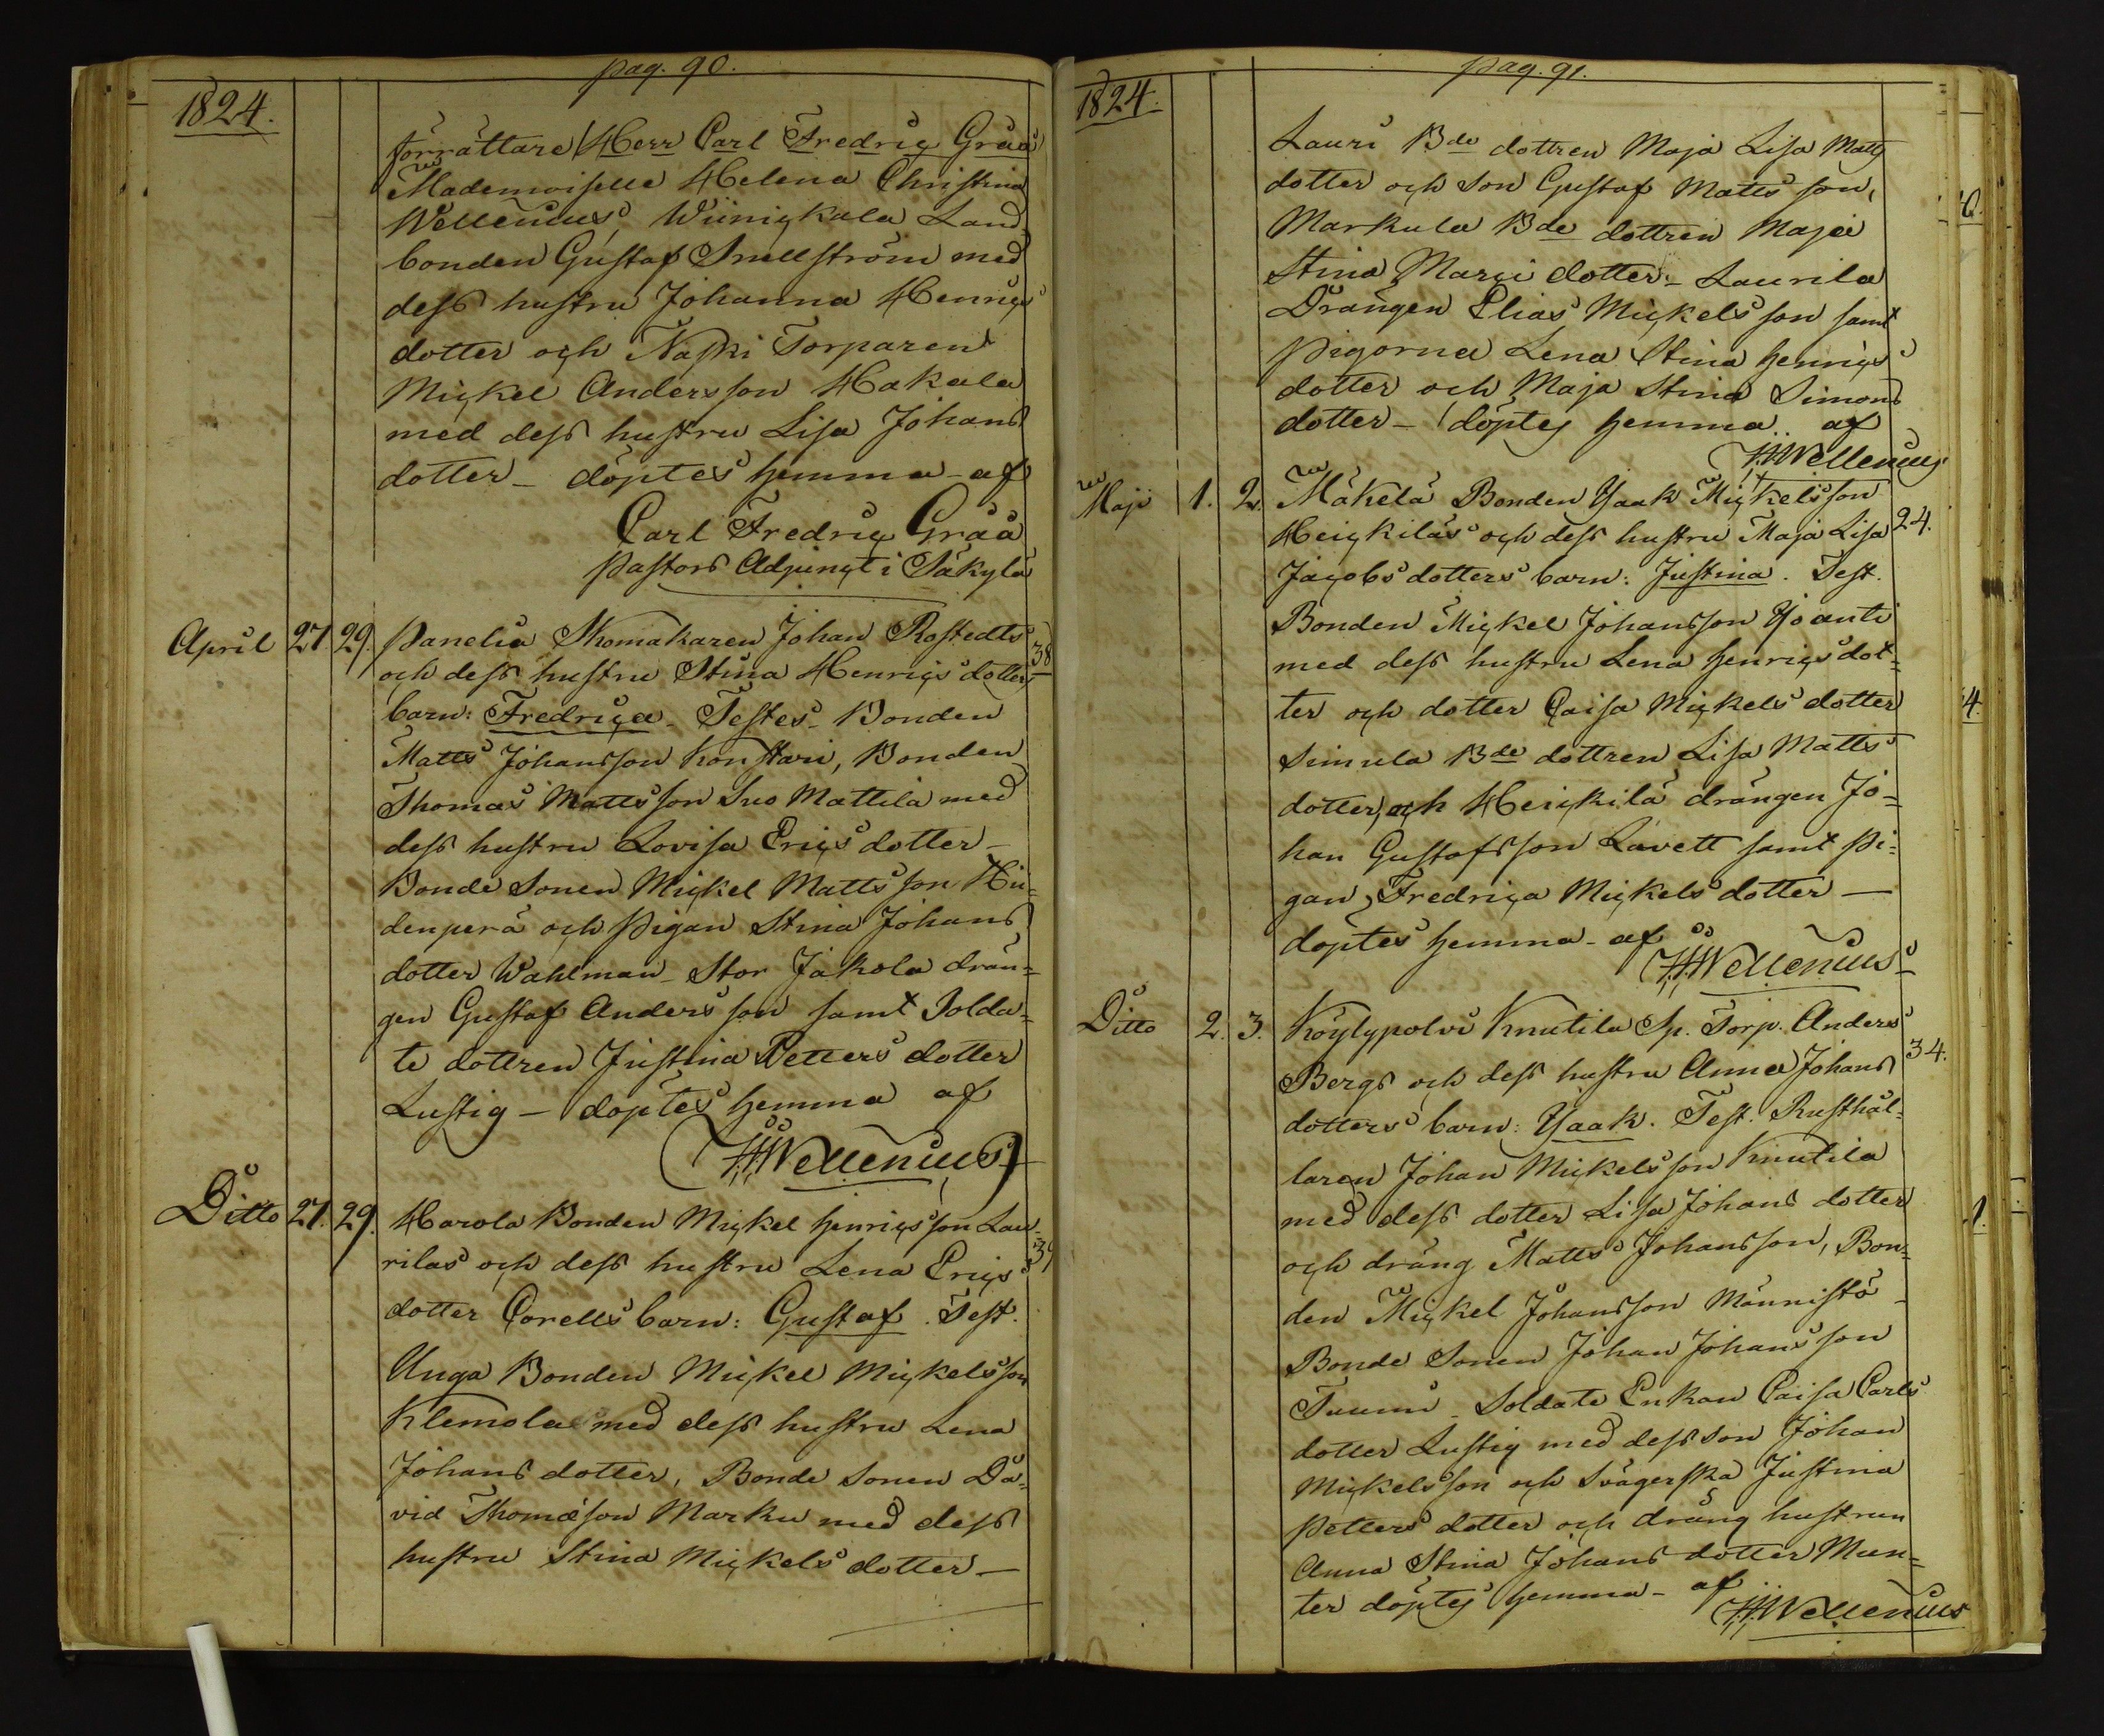 pag. 90.
1824.
förrättare Herr Carl Fredric Graa
Mademoiselle Helena Christina
Wellenius, Wiinickala Land
bonden Gustaf Snellström med
dess hustru Johanna Henrics
dotter och Naski Torparen
Mickel Andersson Hakala
med dess hustru Lisa Johans
dotter - döptes hemma - af
Carl Fredric Gråå
Pastors Adjunct i Säkylä
April 27. 29. Panelia Skomakaren Johan Rostedts 38
och dess hustru Stina Henrics dotters
barn: Fredrica - Testes - Bonden
Matts Johansson Konstari, Bonden
Thomas Mattsson Suo Mattila med
dess hustru Lovisa Erics dotter -
Bonde Sonen Mickel Mattsson Hii-
denperä och Pigan Stina Johans
dotter Wahlman - Stor Jakola drän-
gen Gustaf Andersson samt Solda-
te dottren Justina Petters dotter
Lustig - döptes hemma af
HHWellenius
Ditto 27. 29. Harola Bonden Mickel Henricsson Lau- 39
rilas och dess hustru Lena Erics
dotter Corells barn: Gustaf. Test.
Unga Bonden Mickel Mickelsson
Klemola med dess hustru Lena
Johans dotter, Bonde Sonen Da-
vid Thomæson Marku med dess
hustru Stina Mickels dotter -
pag. 91.
1824.
Lauri Bde dottren Maja Lisa Matts
dotter och Son Gustaf Matts son,
Markula Bde dottren Maja
Stina Marci dotter - Laurila
Drängen Elias Mickels son samt
Pigorna Lena Stina Henrics
dotter och Maja Stina Simons
dotter - döptes hemma af
HHWellenius
Maji 1. 2. Mäkelä Bonden Isaak Mickelsson
Heickiläs och dess hustru Maja Lisa 24.
Jacobs dotters barn: Justina. Test.
Bonden Mickel Johansson Yjoanti
med dess hustru Lena Henrics dot-
ter och dotter Caisa Mickels dotter
Simula Bde dottren Lisa Matts
dotter, och Heickilä drängen Jo-
han Gustafsson Lavett samt Pi-
gan, Fredrica Mickels dotter -
döptes hemma - af
HHWellenius
Ditto 2. 3. Köylypolvi Knutila Sp. Torp. Anders
Bergs och dess hustru Anna Johans 34.
dotters barn: Isaak. Test. Rusthål-
laren Johan Mickelsson Knutila
med dess dotter Lisa Johans dotter
och dräng Matts Johansson, Bon-
den Mickel Johansson Männistö -
Bonde Sonen Johan Johans son
Tuumi - Soldate Enkan Caisa Carls
dotter Lustig med dess son Johan
Mickelsson och Svägerska Justina
Petters dotter och dräng hustrun
Anna Stina Johans dotter Mun-
ter döptes hemma - af
HHWellenius